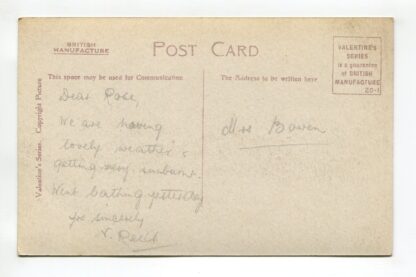 BRITISH
MANUFACTURE
POST CARD
VALENTINE'S
SERIES
is a guarantee
of BRITISH
MANUFACTURE
This space may be used for Communication
The Address to be written here
Valentine's Series. Copyright Picture
Dear Rose,
We are having
lovely weather &
getting very sunburnt.
Went bathing yesterday
sincerely
V.
Mrs Bowen